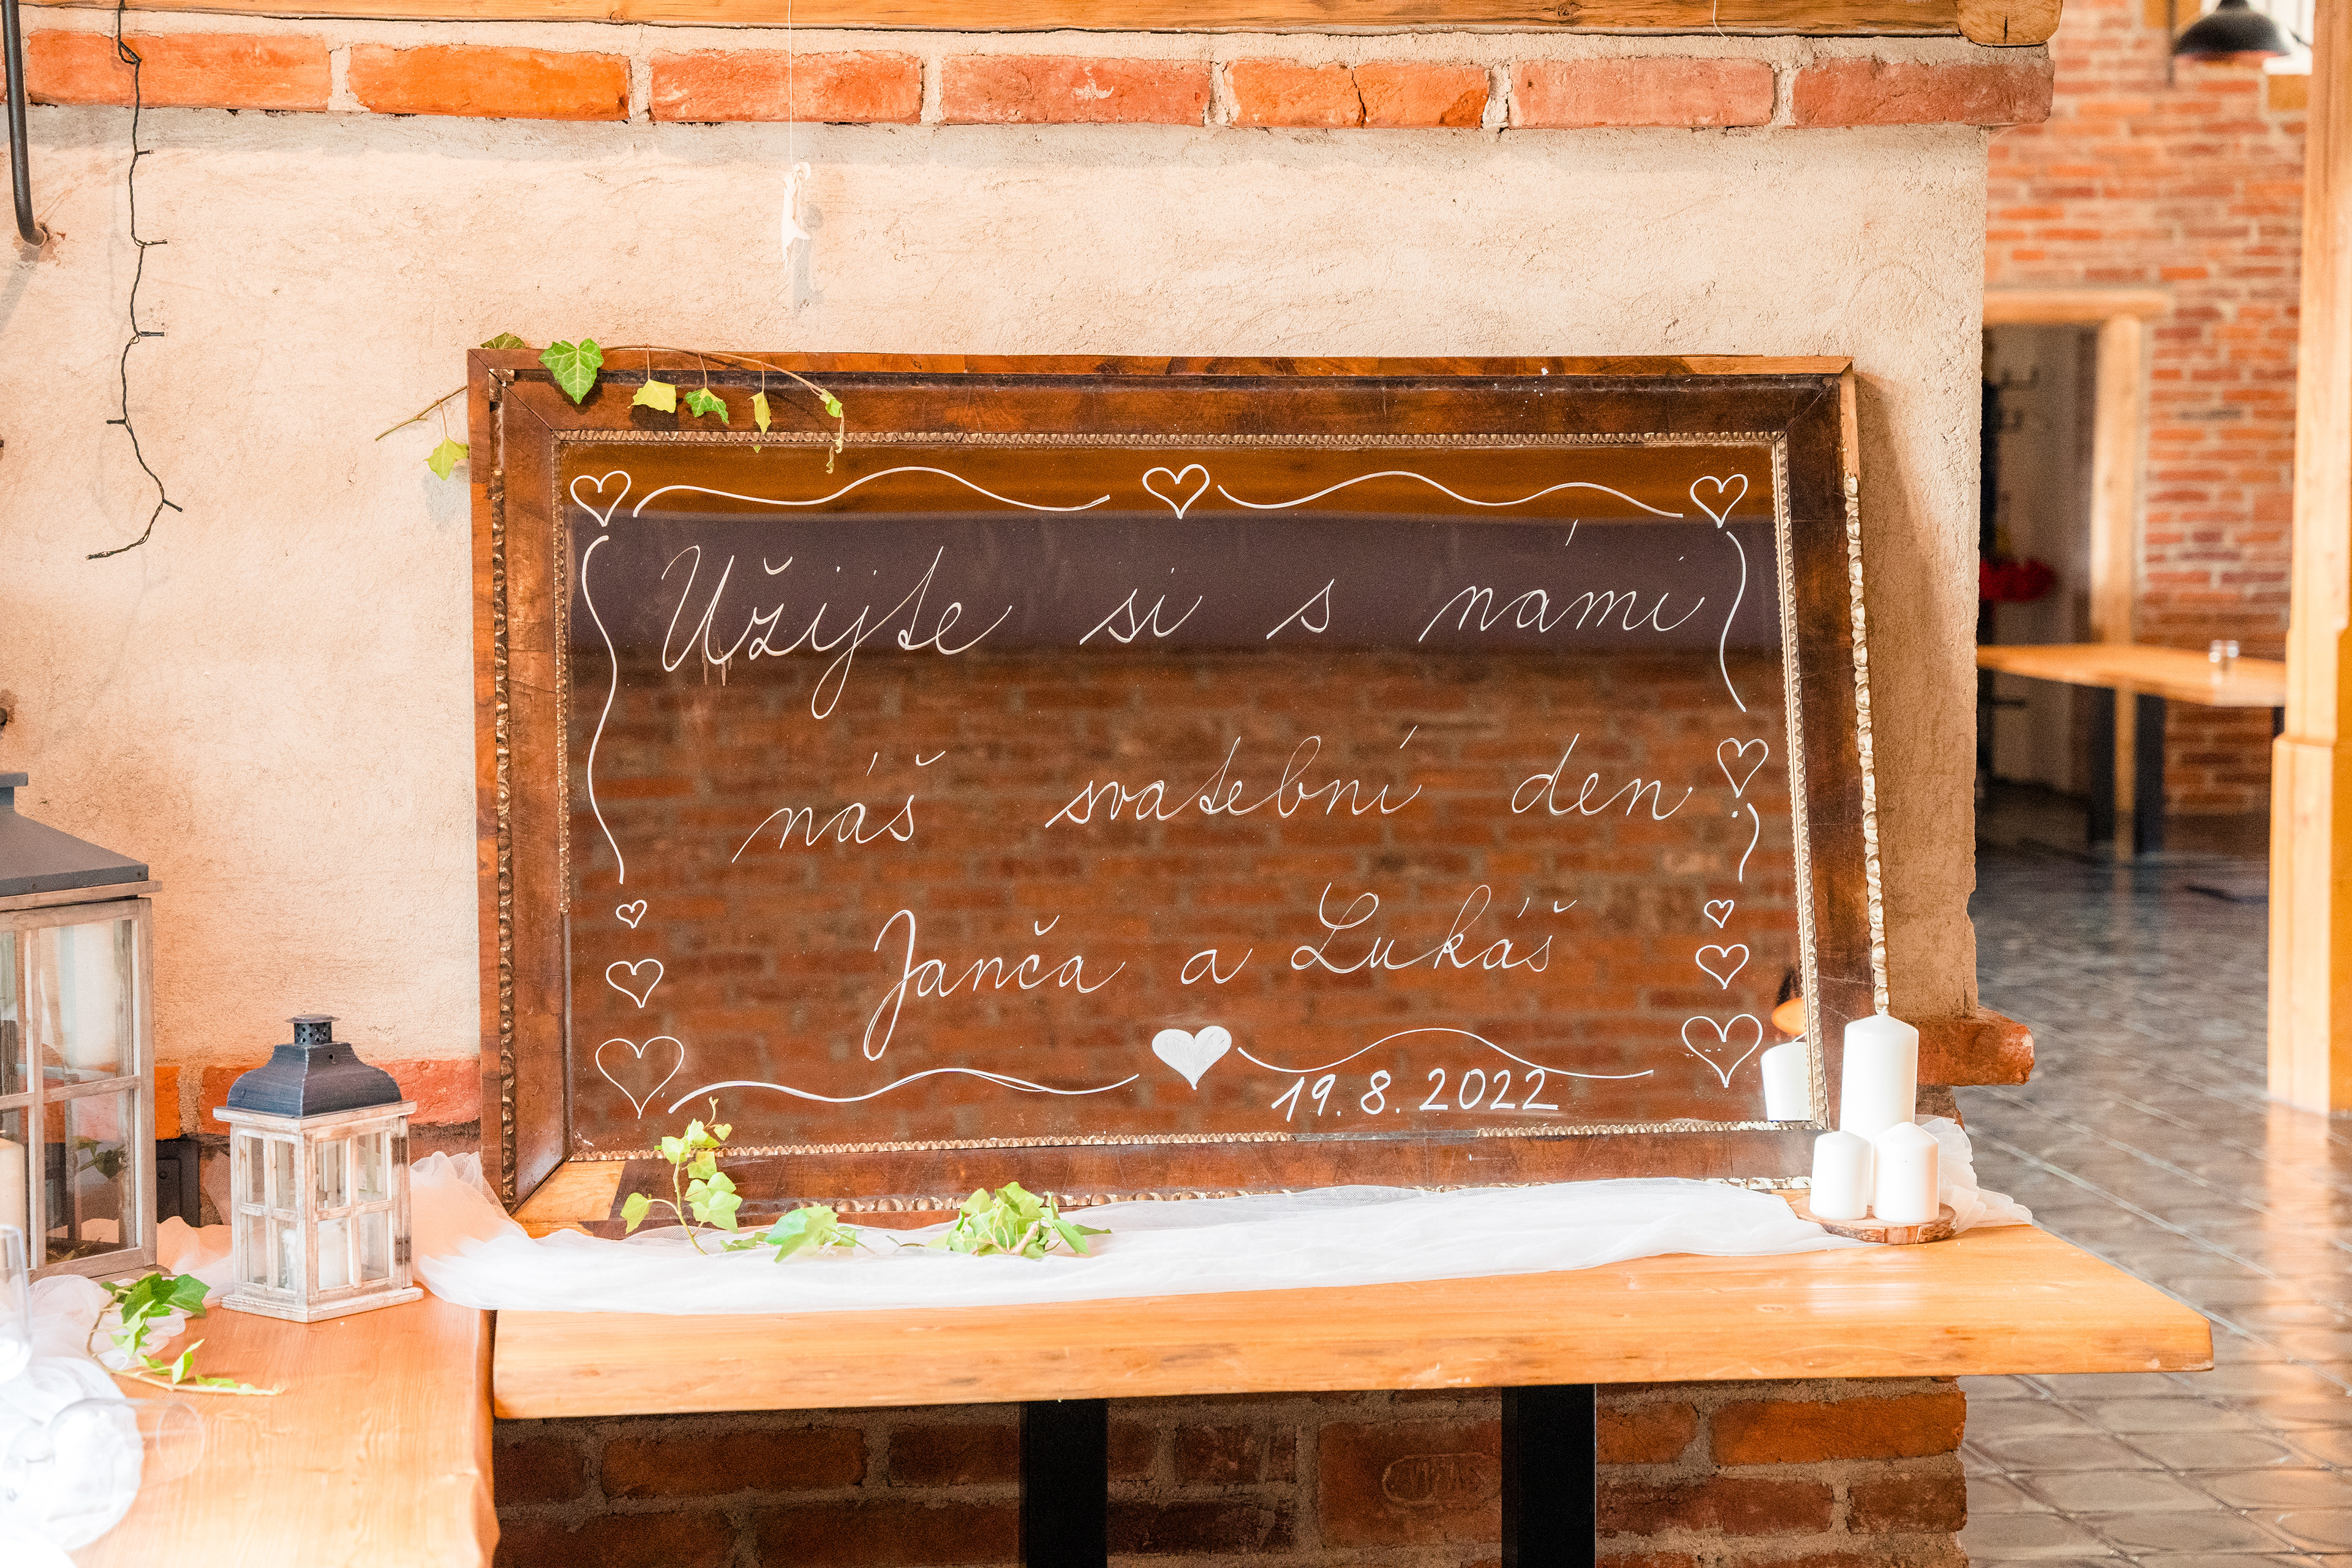 Užijte si s námi
náš svatební den
Janča a Lukáš
19. 8. 2022